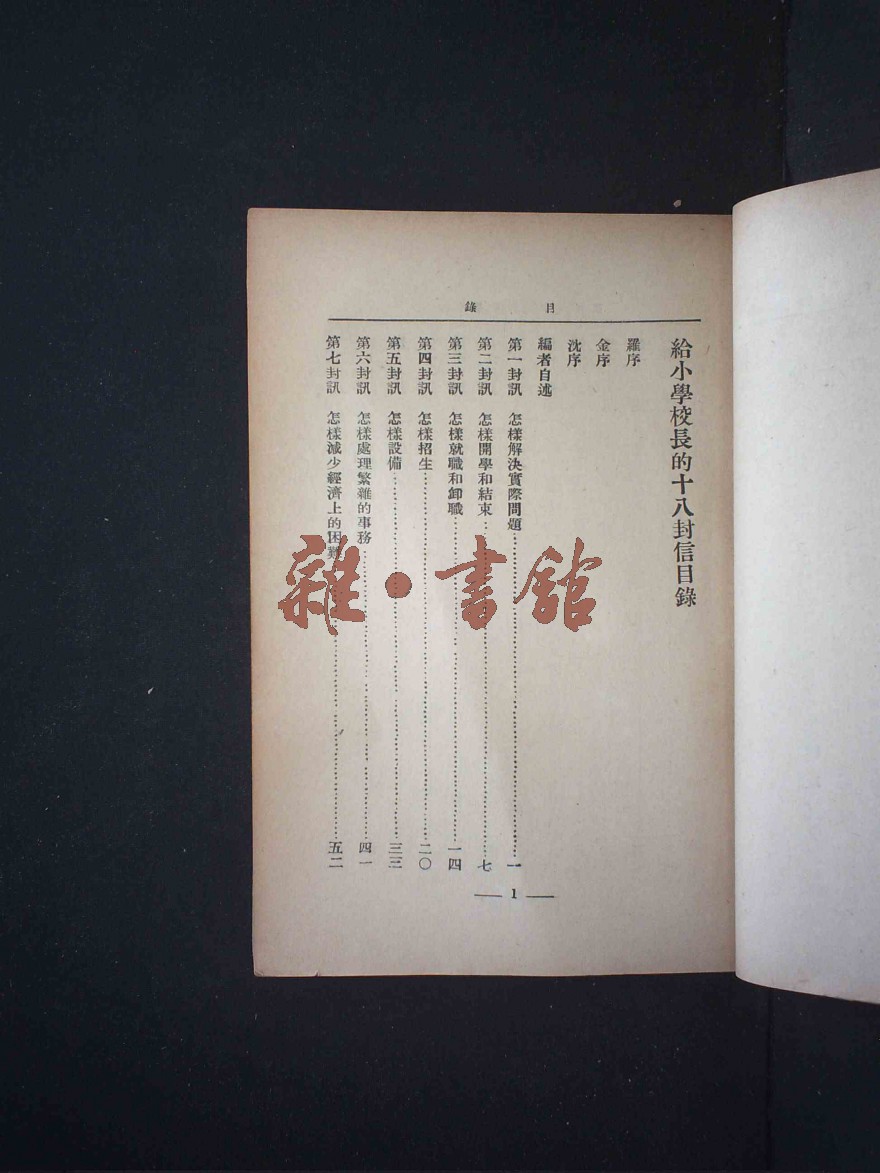 目錄
給小學校長的十八封信目錄
羅序
金序
沈序
編者自述
第一封訊 怎樣解決實際問題……一
第二封訊 怎樣開學和結束……七
第三封訊 怎樣就職和卸職……一四
第四封訊 怎樣招生……二〇
第五封訊 怎樣設備……三三
第六封訊 怎樣處理繁雜的事務……四一
第七封訊 怎樣減少經濟上的困難……五二
— 1 —
雜·書館